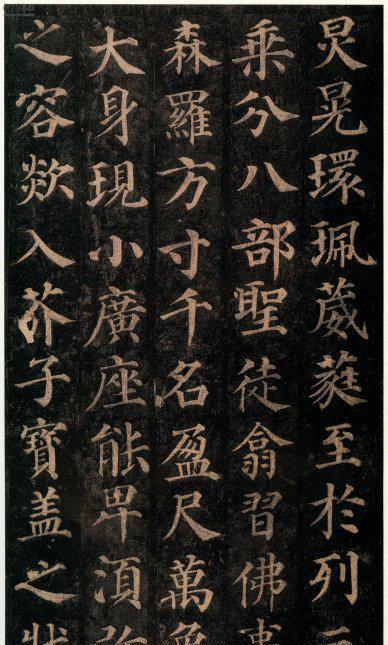 炅晃環珮葳蕤至於列
乘分八部聖徒翕習佛事
森羅方寸千名盈尺萬象
大身現小廣座能卑湏弥
之容欻入芥子寶盖之狀